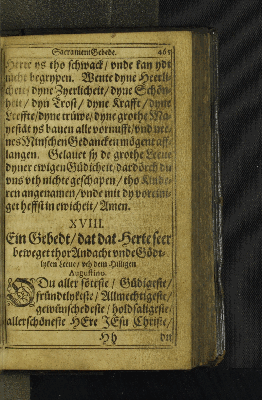 Sacrament Gebede. 465
Herte ys tho schwack / vnde kan ydt
nicht begrypen. Wente dyne Heerli-
cheit / dyne Zyerlicheit / dyne Schön-
heit / dyn Trost / dyne Krafft / dyne
Leeffte / dyne trüwe / dyne grothe Ma-
yestät ys bauen alle vornufft / vnd
nes Minschen Gedancken mögen aff-
langen. Gelauet sy de grothe Leeue
dyner ewigen Güdicheit / dardörch du
vns vth nichte geschapen / tho Kinde-
ren angenamen / vnde mit dy voreini-
get heffst in ewicheit / Amen.
XVIII.
Ein Gebedt / dat dat Herte seer
beweget thor Andacht vnde Gödt-
lyken Leeue / vth dem Hilligen
Augustino.
O Du aller söteste / Güdigeste /
fründtlykeste / Allmechtigeste /
gewünschedeste / holdsaligeste /
allerschöneste HEre JEsu Christe /
Hh du